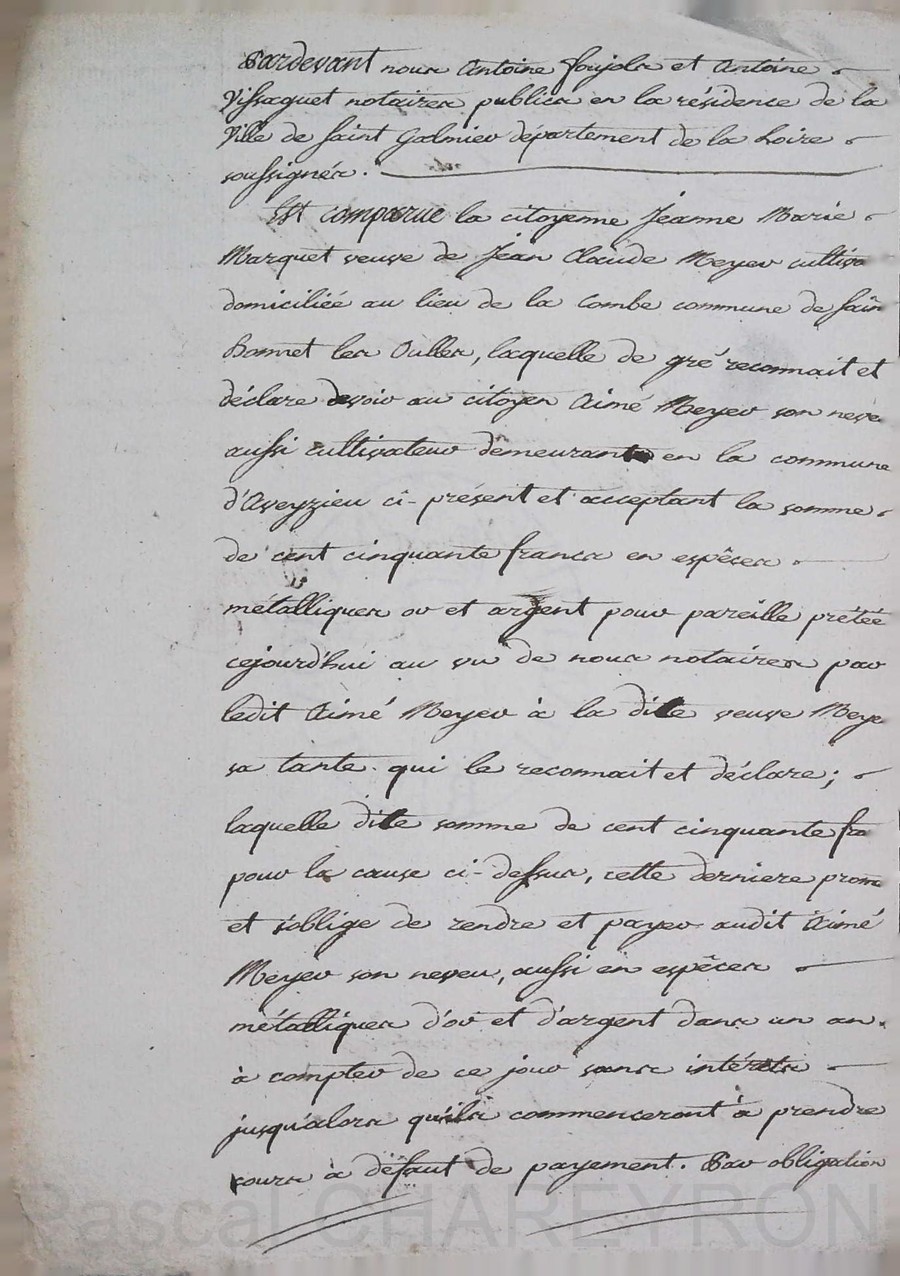 Pardevant nous Antoine Soujols et Antoine
Vissaguet notaires publics en la résidence de la
Ville de Saint Galmier département de la Loire
soussignés.
Est comparue la citoyenne Jeanne Marie
Marquet veuve de Jean Claude Meyer cultiva
domiciliée au lieu de la Combe commune de Sain
Bonnet les Oulles, laquelle de gré reconnait et
déclare devoir au citoyen Aimé Meyer son neve
aussi cultivateur demeurant en la commune
d'Aveyzieu ci-présent et acceptant la somme
de cent cinquante francs en espêces
métalliques or et argent pour pareille prétée
cejourd'hui au vu de nous notaires par
ledit Aimé Meyer à la dite veuve Meye
sa tante qui le reconnait et déclare;
laquelle dite somme de cent cinquante fra
pour la cause ci-dessus, cette derniere prom
et s'oblige de rendre et payer audit Aimé
Meyer son neveu, aussi en espêces
métalliques d'or et d'argent dans un an
à compter de ce jour sans intérêts
jusqu'alors qu'ils commenceront à prendre
cours à défaut de payement. Par obligation
Pascal CHAREYRON